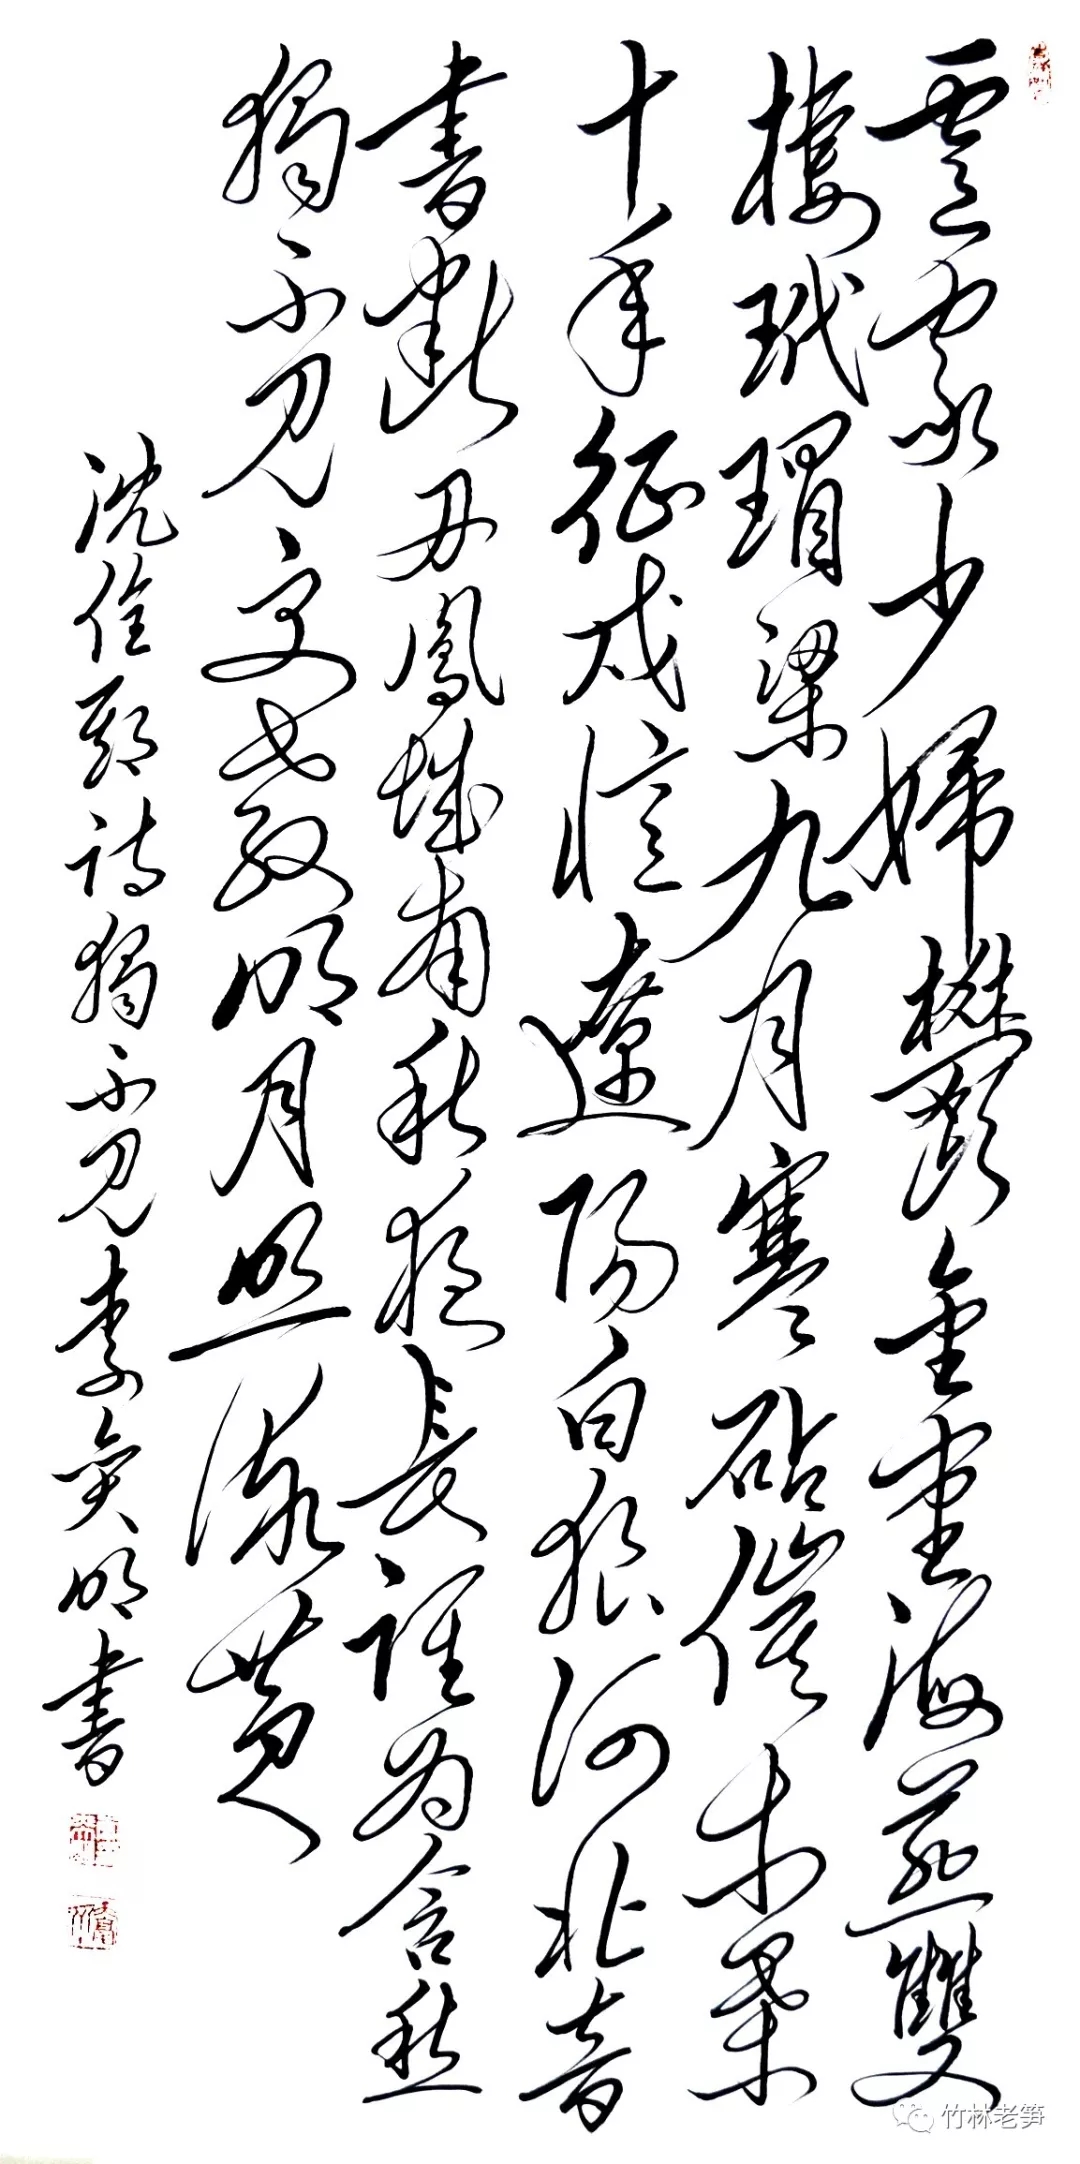 盧家少婦鬱金堂海燕雙
棲玳瑁梁九月寒砧催木葉
十年征戍憶遼陽白狼河北音
書斷丹鳳城南秋夜長誰為含愁
獨不見更教明月照流黄
沈佺期詩獨不見李奐明書
竹林老笋